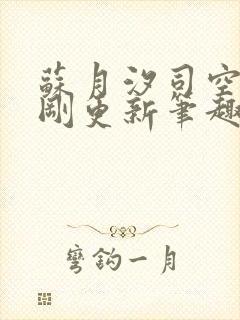 蘇月汐司空
剛更新筆趣
彎鉤一月